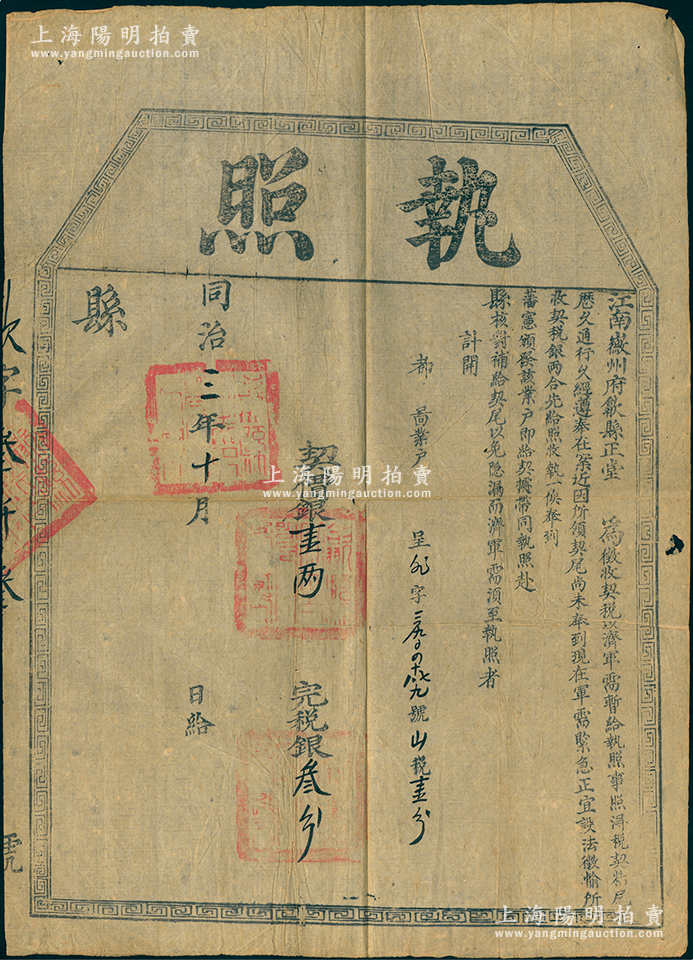 上海陽明拍賣
www.yangmingauction.com
執照
江南徽州府歙縣正堂 為徵收契税以濟軍需暫給執照事照得税契粘尾
歷久通行久經遵奉在案近因所領契尾尚未奉到現在軍需緊急正宜設法徵輸所
收契税銀兩合先給照收執一俟奉到
藩憲頒發該業户即將契攜帶同執照赴
縣核對補給契尾以免隱漏而濟軍需須至執照者
計開
都 啚業户 呈 字 號山税壹分
契價銀壹两 完税銀叁分
同治三年十月 日給
縣
字 號
上海陽明拍賣
www.yangmingauction.com
上海陽明拍賣
www.yangmingauction.com